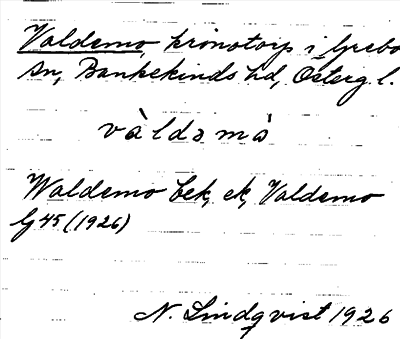 Valdemo, kronotorp i Grebo
sn, Bankekinds hd, Österg.l.
va̋ldəmȧ
Waldemo bek, ek, Valdemo
G 45 (1926)
N. Lindqvist 1926